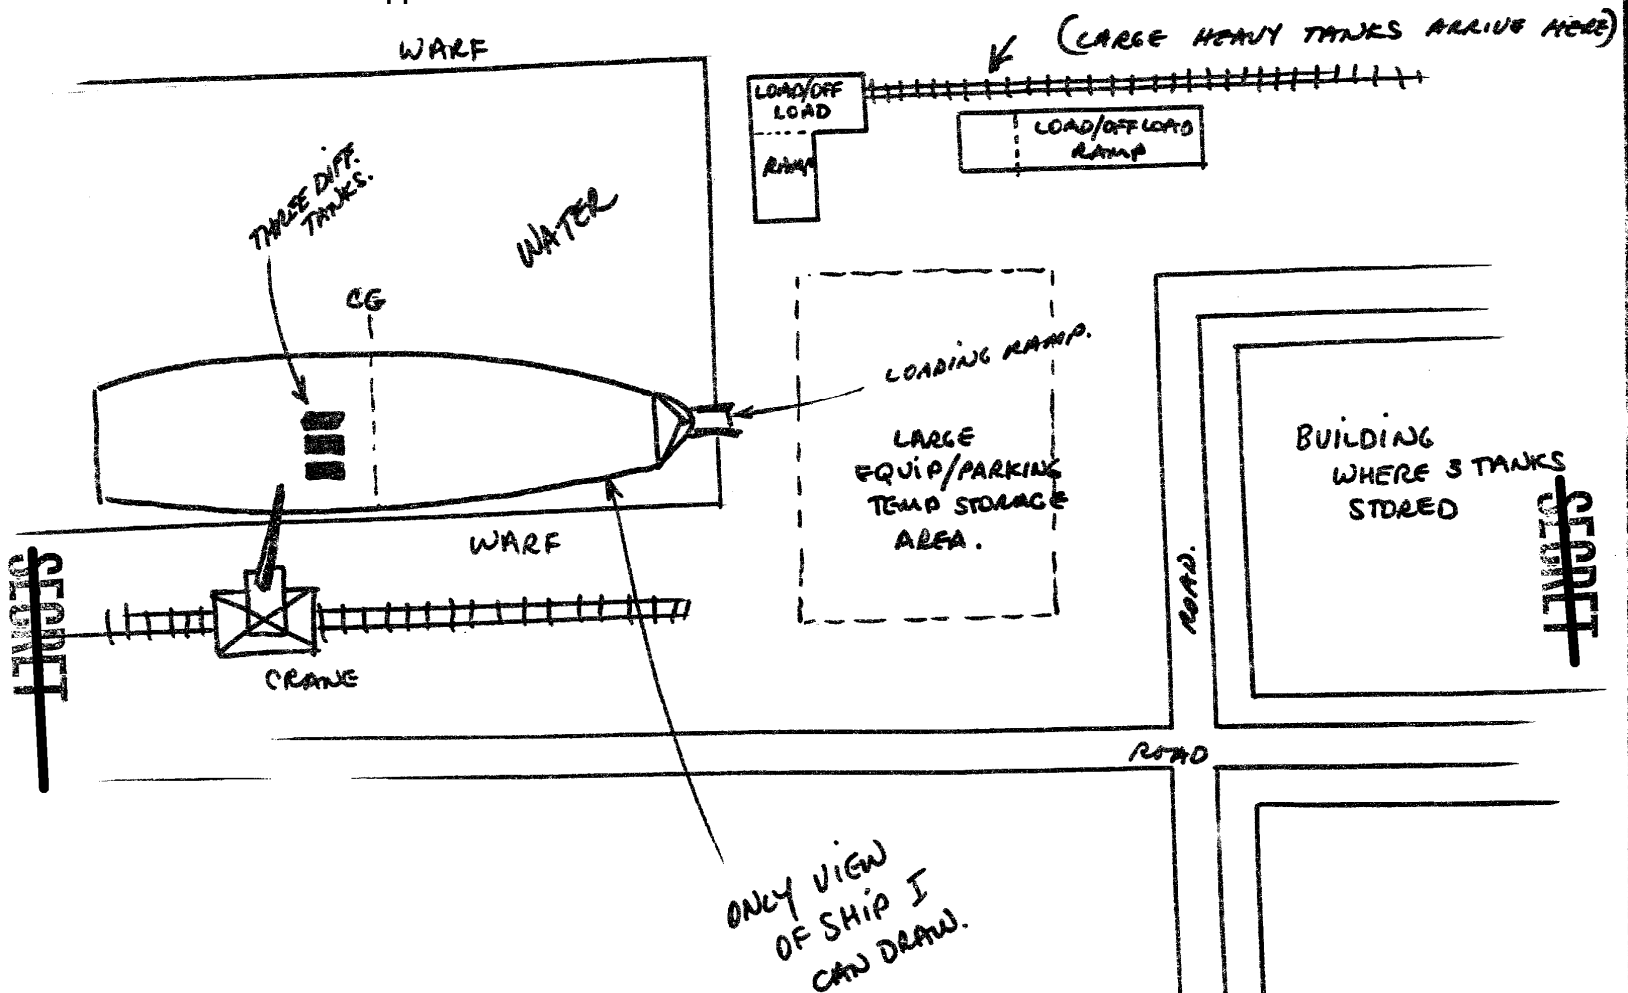 (LARGE HEAVY TANKS ARRIVE HERE)
WARF
LOAD/OFF
LOAD
RAMP
LOAD/OFFLOAD
RAMP
THREE DIFF.
TANKS.
WATER
CG
LOADING RAMP.
LARGE
EQUIP/PARKING
TEMP STORAGE
AREA.
BUILDING
WHERE 3 TANKS
STORED
SECRET
WARF
SECRET
ROAD.
CRANE
ROAD
ONLY VIEW
OF SHIP I
CAN DRAW.